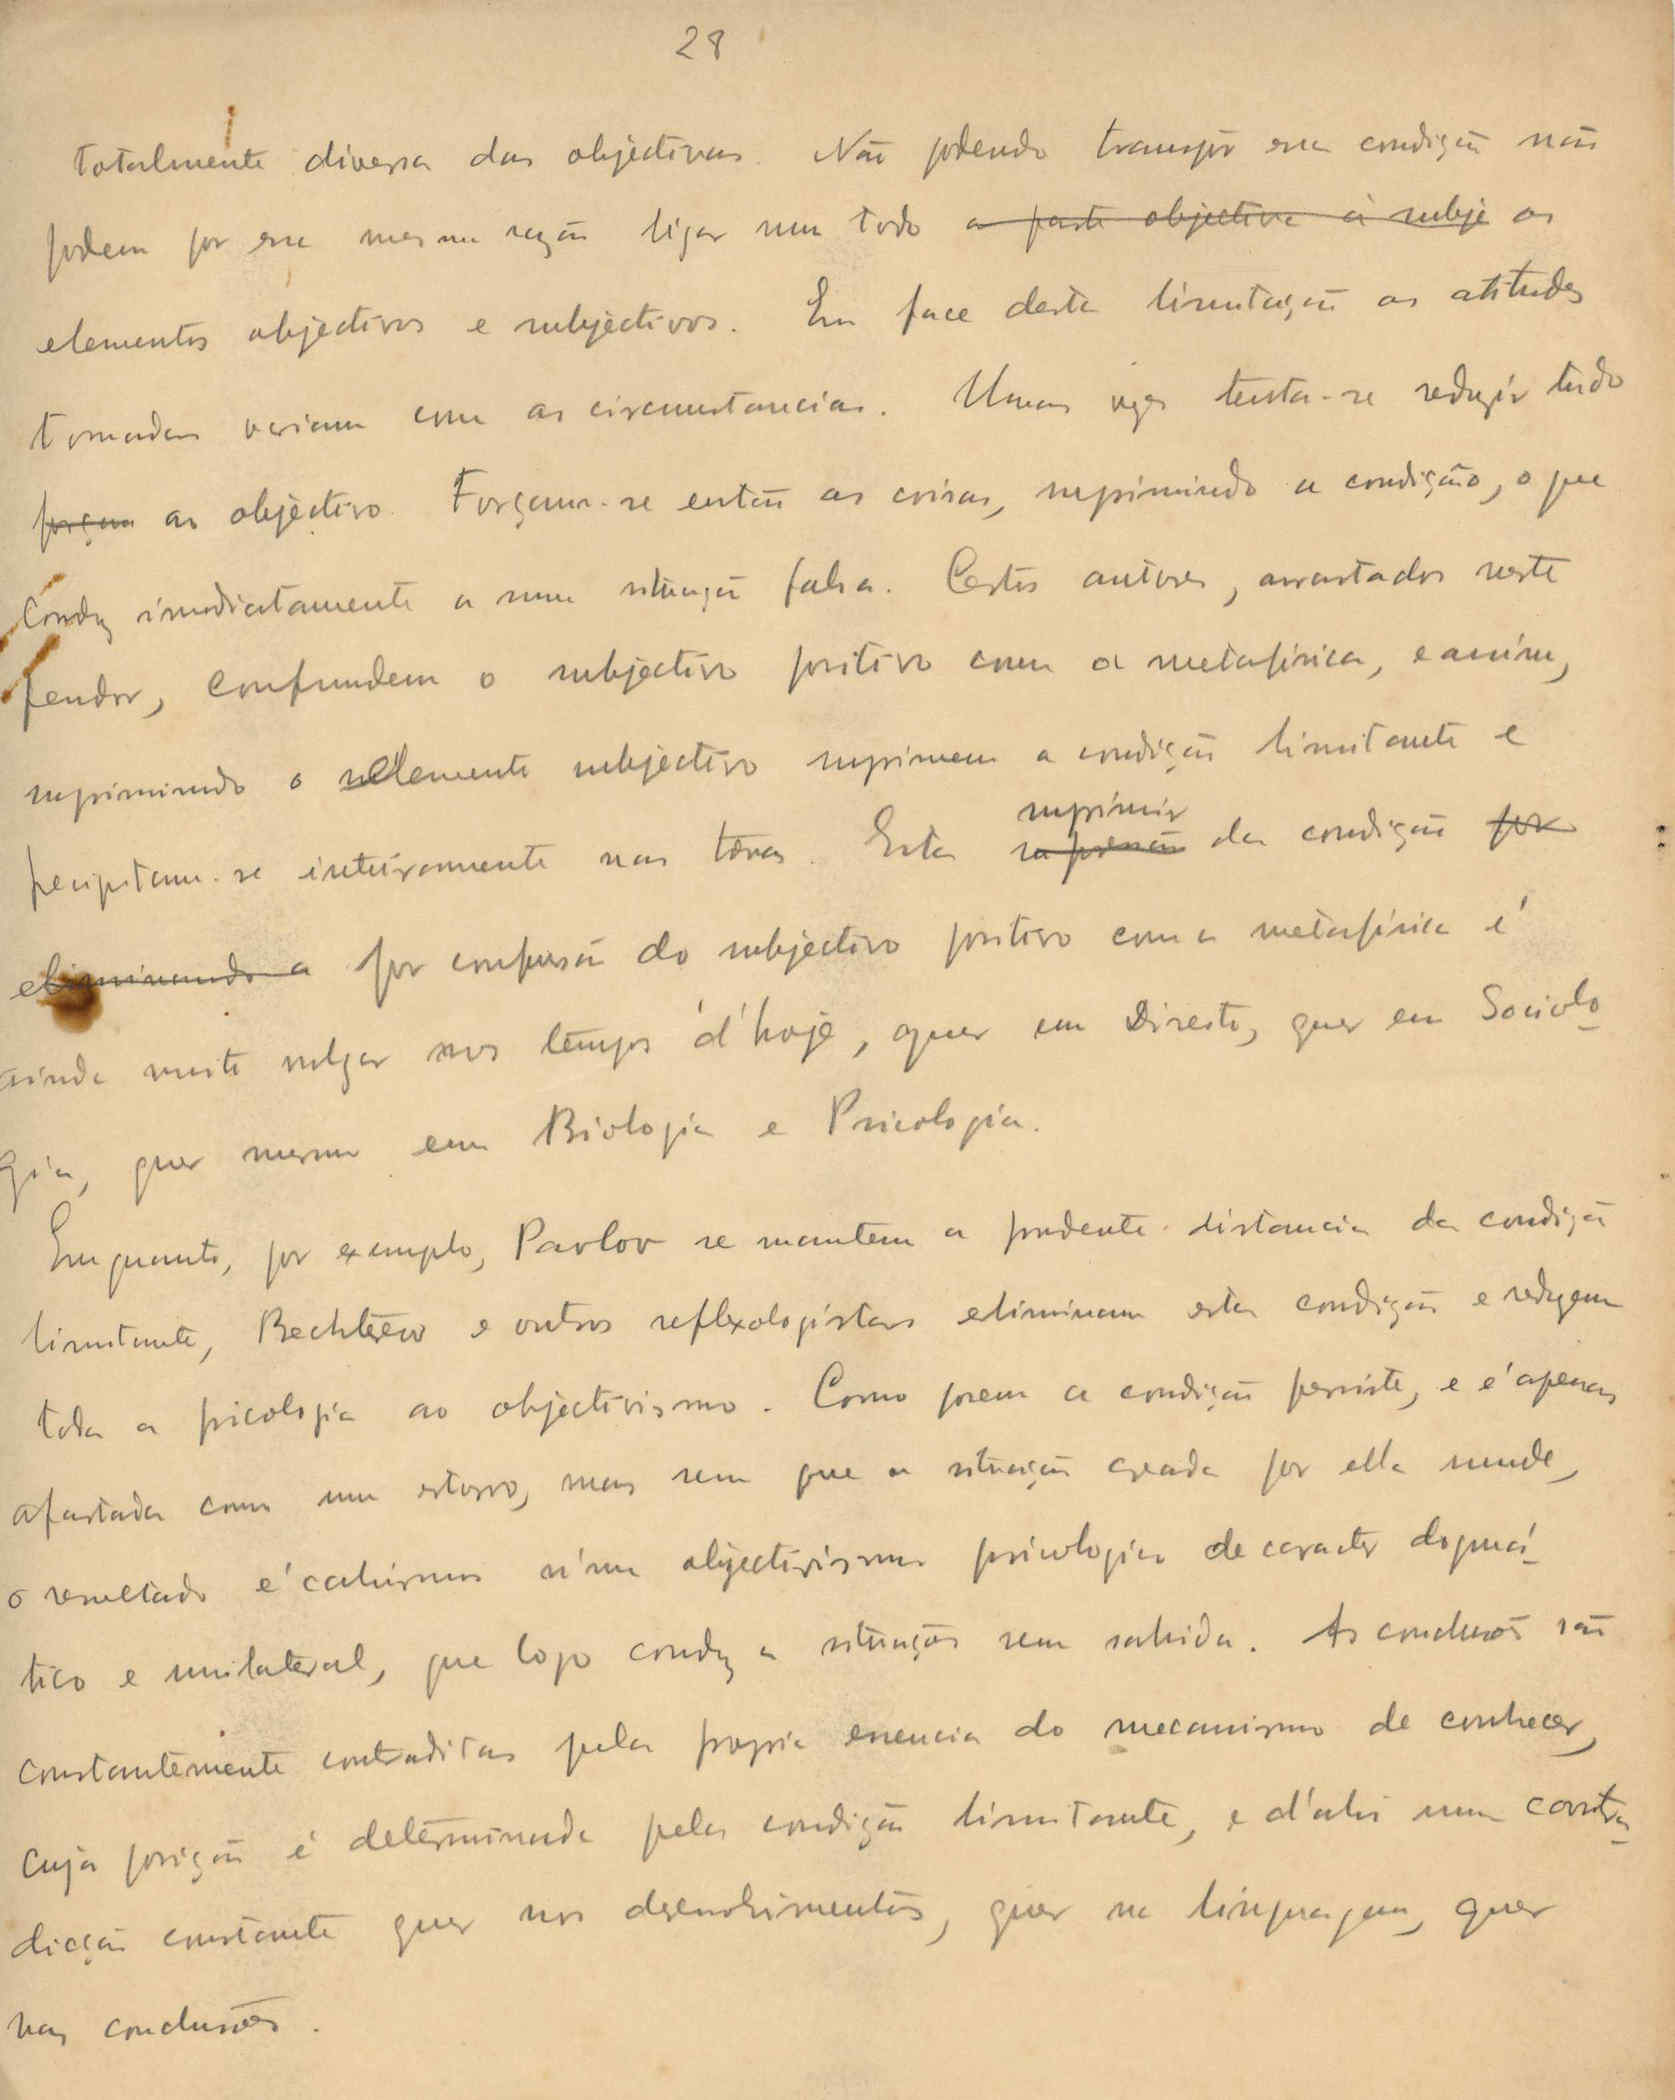 28
totalmente diversa das objectivas. Não podendo transpôr essa condição não
podem por essa mesma razão ligar num todo a parte objectiva á subje os
elementos objectivos e subjectivos. Em face desta limitação as atitudes
tomadas variam com as circumstancias. Umas vezes tenta-se reduzir tudo
forçam ao objectivo. Forçam-se então as coisas, suprimindo a condição, o que
conduz imediatamente a uma situação falsa. Certos autores, arrastados neste
pendor, confundem o subjectivo positivo com a metafísica, e assim,
suprimindo o elemento subjectivo suprimem a condição limitante e
precipitam-se inteiramente nas trevas. Este suprimir
supressão da condição por
eliminando a por confusão do subjectivo positivo com a metafísica é
ainda muito vulgar nos tempos d'hoje, quer em Direito, quer em Sociolo-
gia, quer mesmo em Biologia e Psicologia.
Emquanto, por exemplo, Pavlov se mantem a prudente distancia da condição
limitante, Bechterew e outros reflexologistas eliminam esta condição e reduzem
toda a psicologia ao objectivismo. Como porem a condição persiste, e é apenas
afastada como um estorvo, mas sem que a situação creada por ella mude,
o resultado é cahirmos n'um objectivismo psicologico de caracter dogmá-
tico e unilateral, que logo conduz a situações sem sahida. As conclusões são
constantemente contraditas pela propria essencia do mecanismo de conhecer,
cuja posição é determinada pela condição limitante, e d'ahi uma contra-
dicção constante quer nos desenvolvimentos, quer na linguagem, quer
nas conclusões.